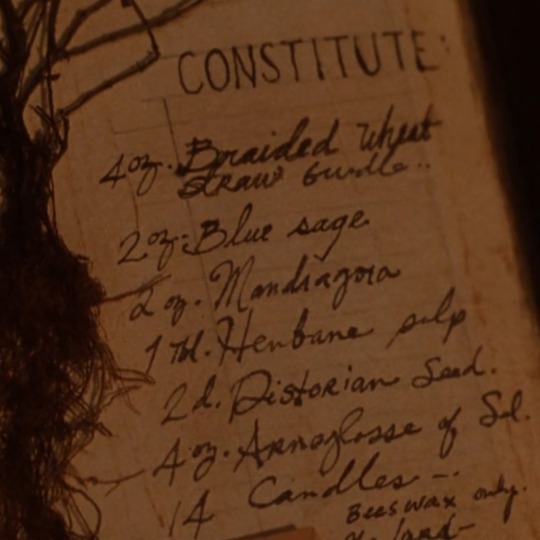 CONSTITUTE:
4 oz. Braided Wheat
straw bundle..
2 oz. Blue sage
2 oz. Mandragora
1 Tbl. Henbane pulp
2 d. Distorian Seed.
4 oz. Arnoglosse of Sol.
14 Candles -.
Beeswax only.
lard-